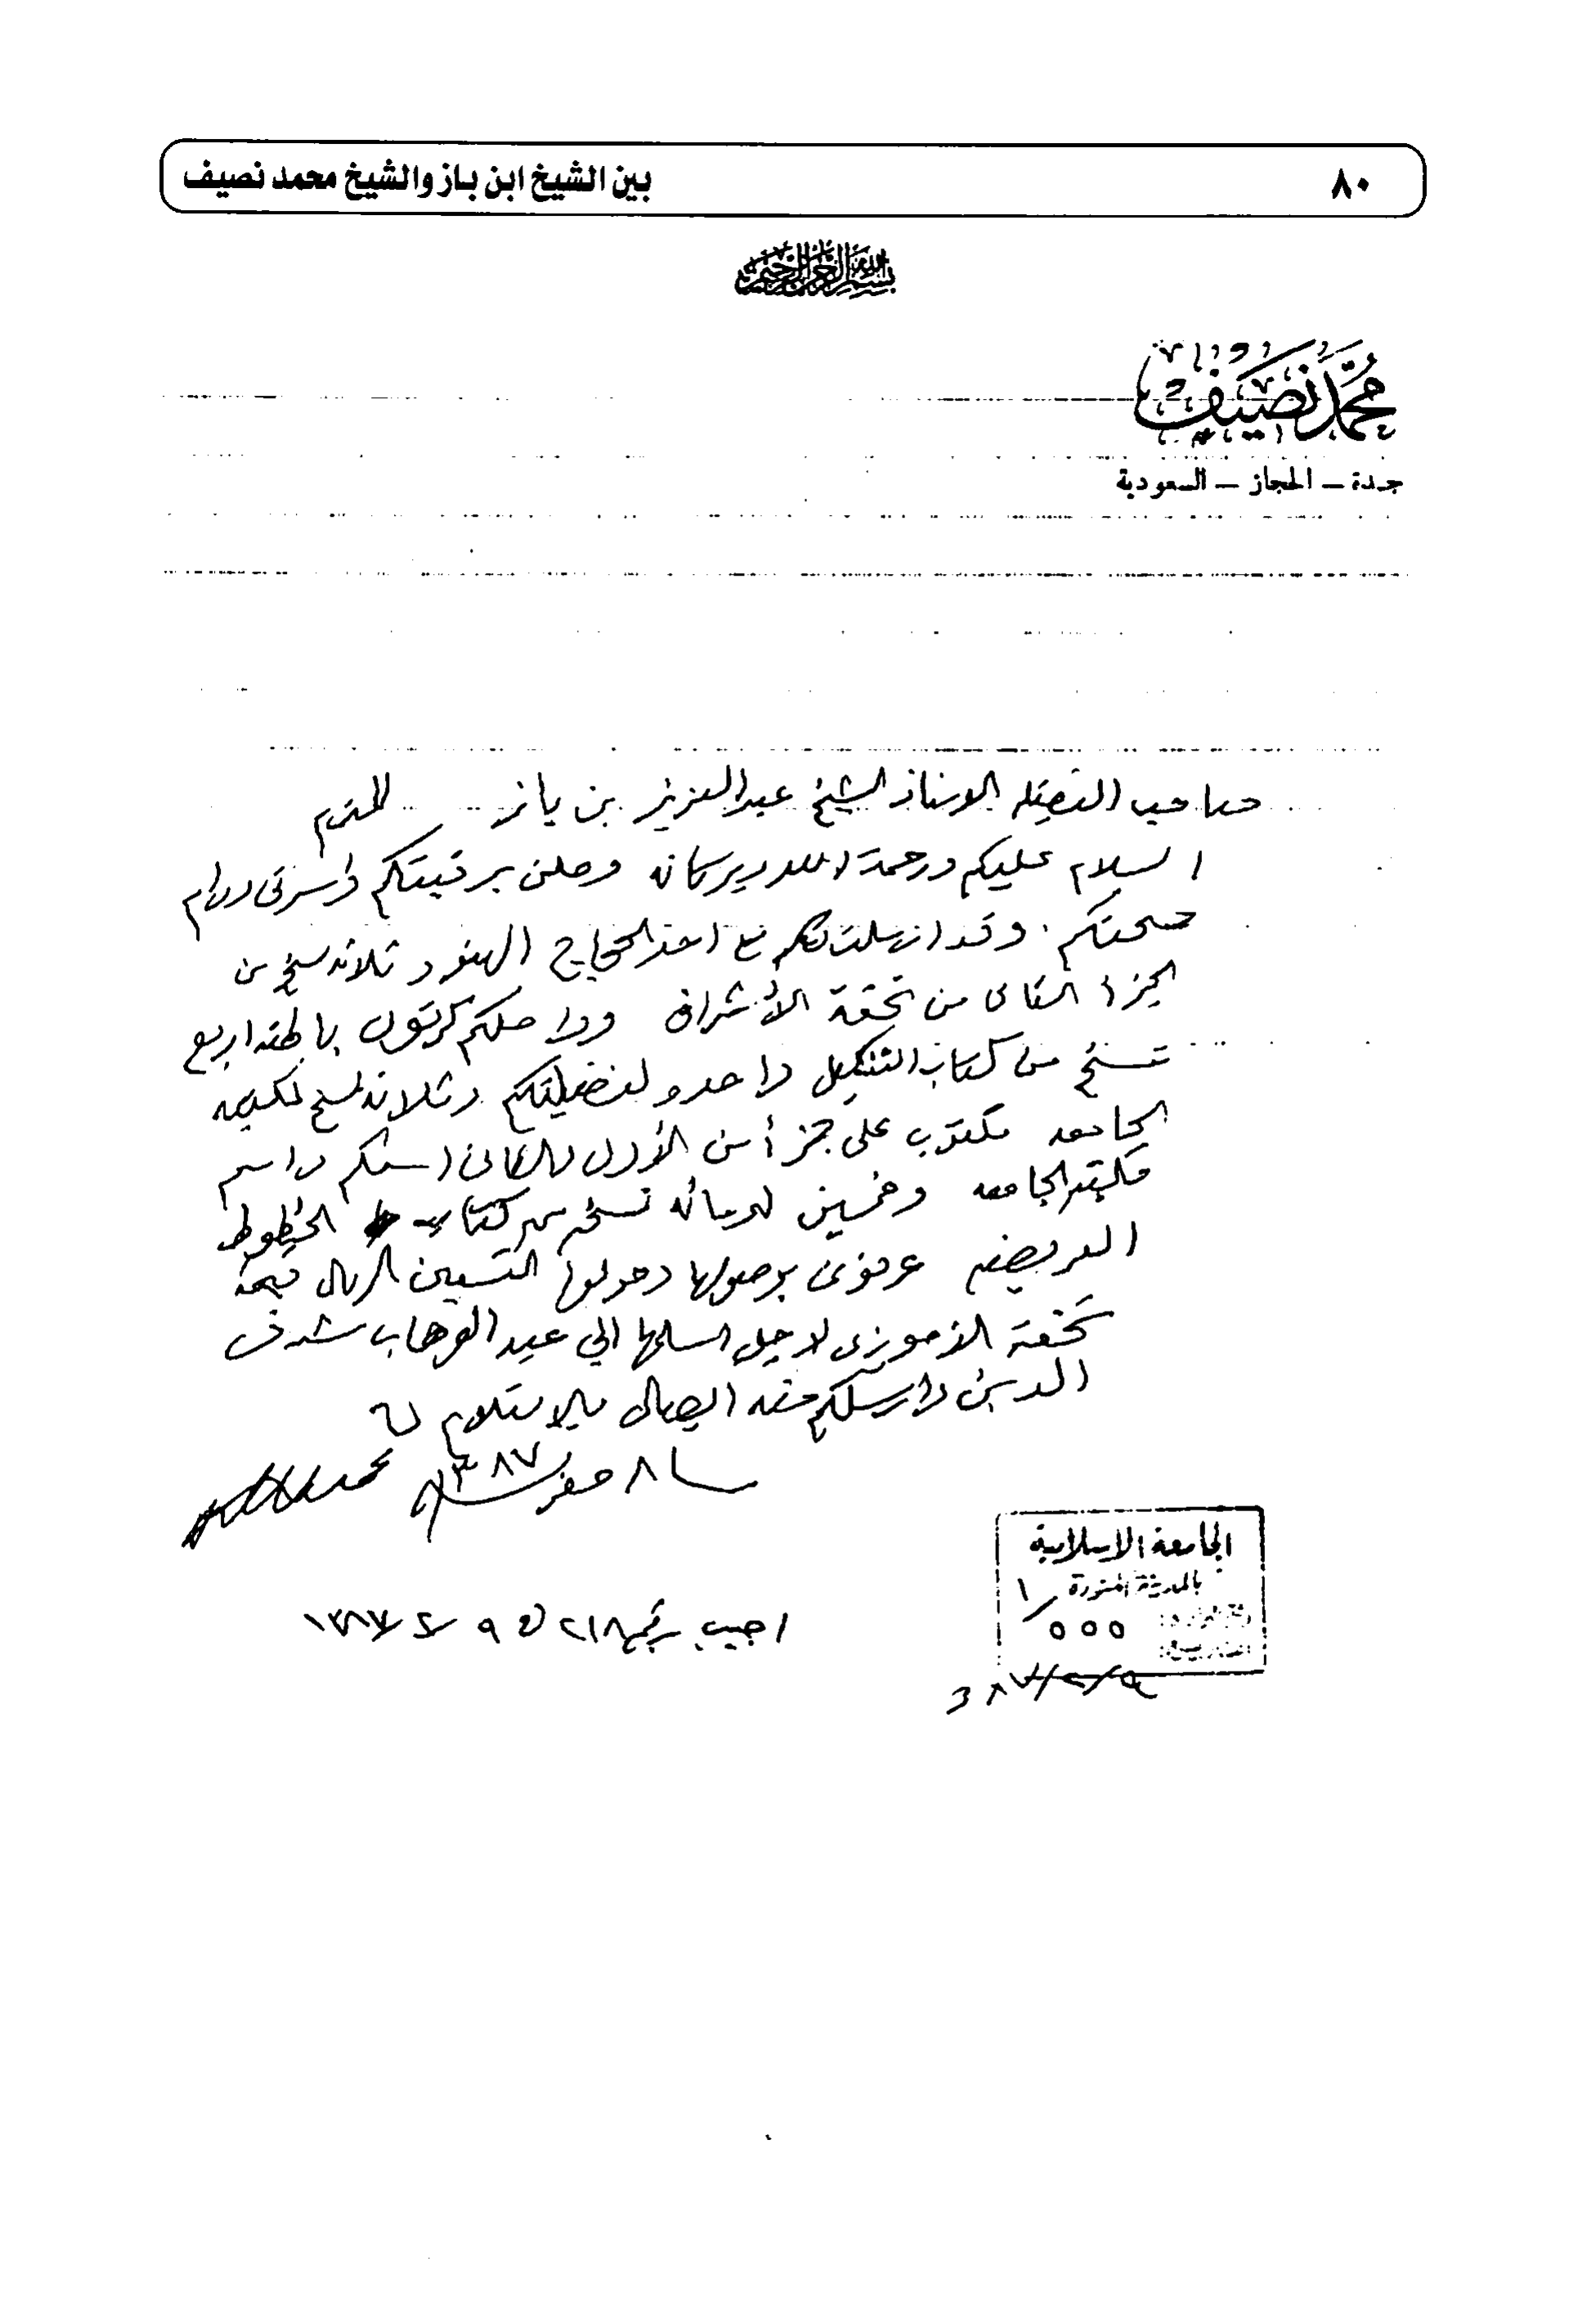 ٨٠
بين الشيخ ابن باز والشيخ محمد نصيف
بسم الله الرحمن الرحيم
محمد نصيف
جدة – الحجاز – السعودية
صاحب الفضيله الاستاذ الشيخ عبدالعزيز بن باز المحترم
السلام عليكم ورحمة الله وبركاته وصلني برقيتكم واسرني دوام
صحتكم. وقد ارسلت لكم مع احد الحجاج الهنود ثلاثه نسخ من
الجزء الثاني من تحفة الأشراف وواصلكم كرتون باطنه اربع
نسخ من كتاب التنكيل واحده لفضيلتكم وثلاثه نسخ لمكتبه
الجامعه مكتوب على جزأ من الأول والثاني اسمكم واسم
مكتبة الجامعه وخمسين نسخه من كتاب الخطوط
العريضه عرفوني بوصولها وحولوا التسعين الريال قيمة
تحفة الأحوذي لاجل اسلمها الي عبد الوهاب شرف
الدين وارسلكم منه ايصال بالاستلام
٨ صفر سنة ١٣٨٧ محمد
الجامعة الاسلامية
بالمدينة المنورة
١/
٥٥٥
اجيب برقم ٢١٨ في ٩/٢/١٣٨٧